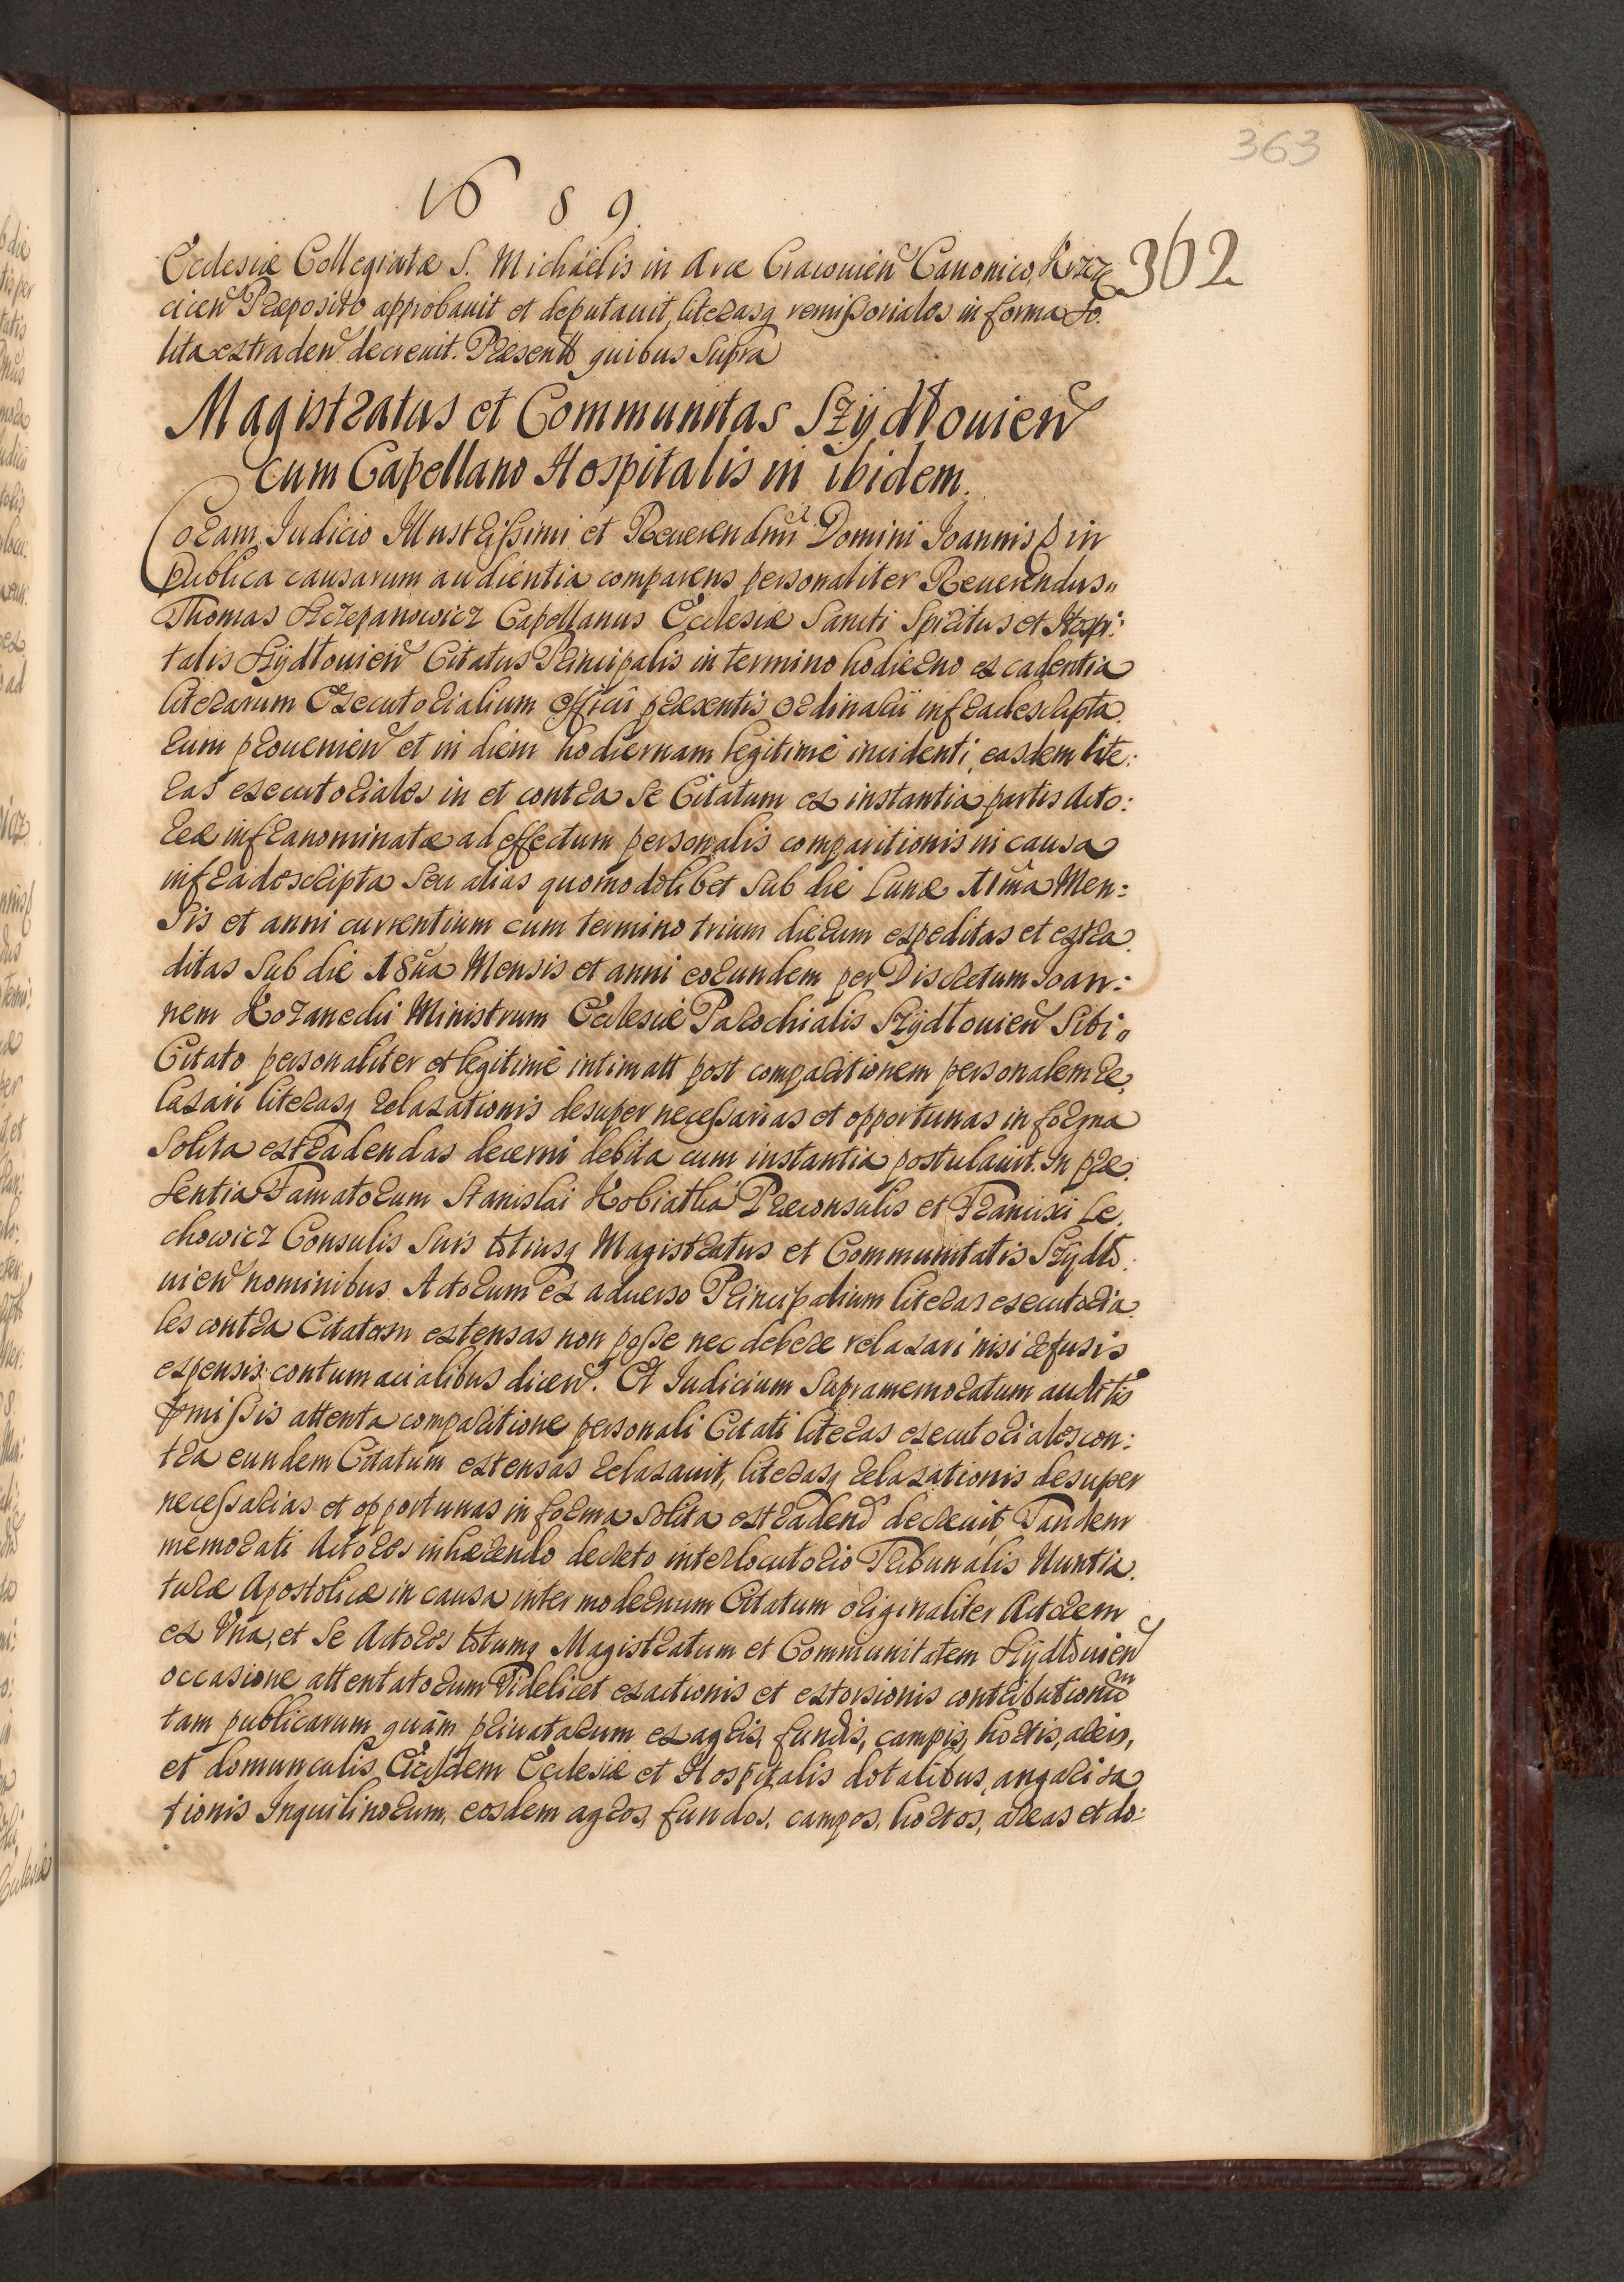 363
1689.
362
Ecclesiæ Collegiatæ S. Michaëlis in Arce Cracouien Canonico,
cicen Præposito approbauit et deputauit, literasq remissoriales in forma so:
lita extraden decreuit. Præsentt quibus supra
Magistratus et Communitas Szÿdłouien
cum Capellano Hospitalis in ibidem.
Coram Iudicio Illustrissimi et Reuerendmi Domini Ioannis in
publica causarum audientia comparens personaliter Reuerendus
Thomas Szczepanowicz Capellanus Ecclesiæ Sancti Spiritus et Hospi:
talis Szÿdłouien Citatus Principalis in termino hodierno ex cadentia
literarum Executorialium officii præsentis ordinarii infradescripta
rum prouenien et in diem hodiernam legitimè incidenti, easdem lite:
ras executoriales in et contra se Citatum ex instantia partis Acto:
reæ infranominatæ ad effectum personalis comparitionis in causa
infradescripta seu alias quomodolibet sub die Lunæ 11ma Men:
sis et anni currentium cum termino trium dierum expeditas et extra
ditas sub die 18ua Mensis et anni eorundem per Discretum Ioan:
nem Ministrum Ecclesiæ Parochialis Szÿdłouien Sibi
Citato personaliter et legitimè intimatt post comparitionem personalem re
laxari literasq relaxationis desuper necessarias et opportunas in forma
solita extradendas decerni debita cum instantia postulauit. In præ
sentia Famatorum Stanislai Kobiałka Præconsulis et Francisci Le
chowicz Consulis suis totiusq Magistratus et Communitatis Szÿdło
uien nominibus Actorum ex aduerso Principalium literas executoria
les contra Citatum extensas non posse nec debere relaxari nisi refusis
expensis contumacialibus dicen. Et Iudicium supramemoratum auditis
pmissis attenta comparitione personali Citati literas executoriales con:
tra eundem Citatum extensas relaxauit, literasq relaxationis desuper
necessarias et opportunas in forma solita extradend decreuit, Tandem
memorati Actores inhærendo decreto interlocutorio Tribunalis Nuntia
turæ Apostolicæ in causa inter modernum Citatum originaliter Actorem
ex Vna, et Se Actores totumq Magistratum et Communitatem Szÿdłouien
occasione attentatorum Videlicet exactionis et extorsionis contributionum
tam publicarum quàm priuatarum ex agris, fundis, campis, hortis, areis,
et domunculis Eiusdem Ecclesiæ et Hospitalis dotalibus, angarisa
tionis Inquilinorum, eosdem agros, fundos, campos, hortos, areas et do: